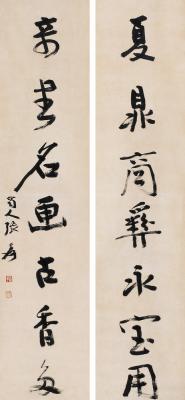 夏鼎商彝永宝用
奇書名画古香多
蜀人張爰